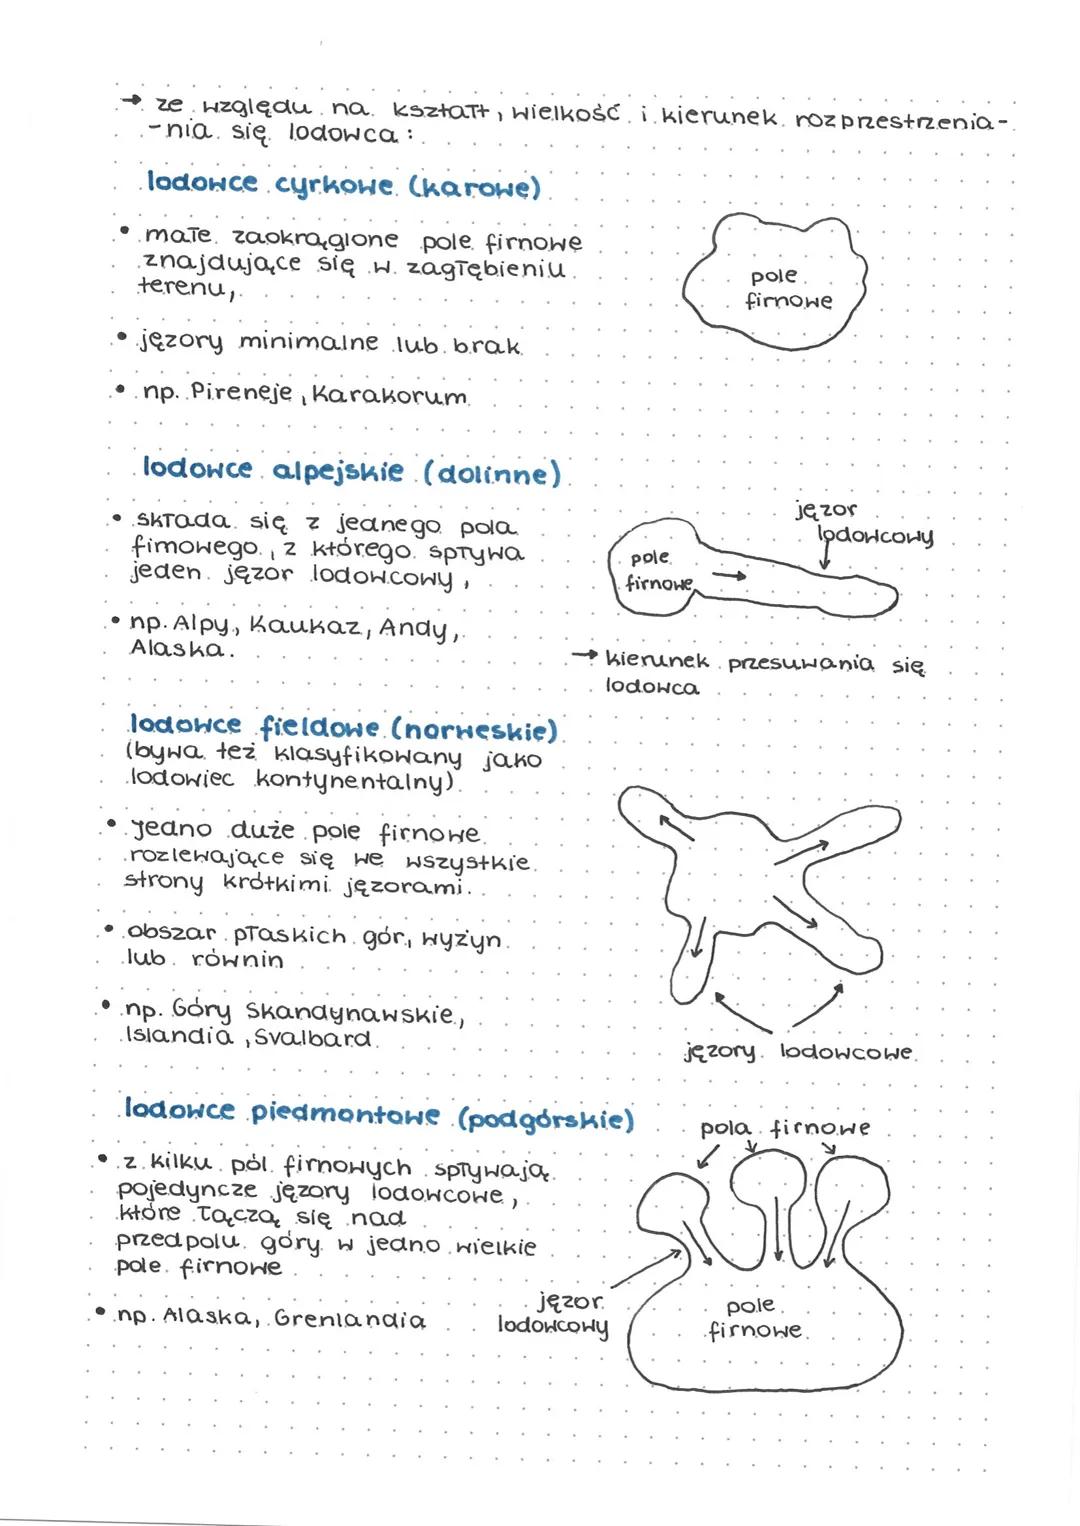 → ze względu na kształt, wielkość i kierunek rozprzestrzenia-
-nia się lodowca:
lodowce cyrkowe (karowe)
• małe zaokrąglone pole firnowe
znajdujące się w zagłębieniu
terenu,
pole
firnowe
• jęzory minimalne lub brak
• np. Pireneje, Karakorum
lodowce alpejskie (dolinne)
• składa się z jednego pola
firnowego, z którego spływa
jeden jęzor lodowcowy,
jęzor
lodowcowy
pole
firnowe
• np. Alpy, Kaukaz, Andy,
Alaska.
→ kierunek przesuwania się
lodowca
lodowce fieldowe (norweskie)
(bywa też klasyfikowany jako
lodowiec kontynentalny)
• jedno duże pole firnowe
rozlewające się we wszystkie
strony krótkimi jęzorami.
• obszar płaskich gór, wyżyn
lub równin
• np. Góry Skandynawskie,
Islandia, Svalbard
jęzory lodowcowe
lodowce piedmontowe (podgórskie)
pola firnowe
• z kilku pól firnowych spływają
pojedyncze jęzory lodowcowe,
które łączą się nad
przedpolu góry w jedno wielkie
pole firnowe
• np. Alaska, Grenlandia
jęzor
lodowcowy
pole
firnowe